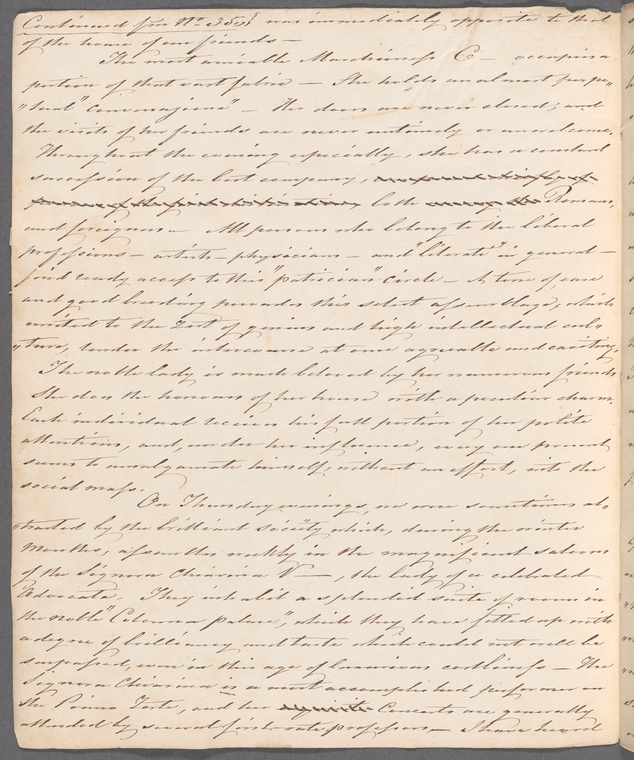 Continued from No. 353} was immediately opposite to that
of the house of our friends —
The most amiable Marchioness C — occupies a
portion of that vast fabric — She holds an almost perpe„
„tual "conversazione" — Her doors are never closed; and
the visits of her friends are never untimely or unwelcome.
Throughout the evening especially, she has a constant
succession of the best company,
both Romans,
and foreigners — All persons who belong to the liberal
professions — artists — physicians — and "literati" in general —
find ready access to this "patrician" circle — A tone of ease
and good breeding pervades this select assemblage, which
united to the Tact of genius and high intellectual cul„
„ture, render the intercourse at once agreeable and exciting.
The noble lady is much beloved by her numerous friends
She does the honours of her house with a peculiar charm.
Each individual receives his full portion of her polite
attentions, and, under her influence, every one present
seems to amalgamate himself, without an effort, into the
social mass.
On Thursday evenings, we were sometimes at„
„tracted by the brilliant society, which, during the winter
months, assembles weekly in the magnificent saloons
of the Signora Chiarina V—, the lady of a celebrated
Advocate. They inhabit a splendid suite of rooms in
the noble "Colonna palace", which they have fitted up with
a degree of brilliancy and taste which could not well be
surpassed, even in this age of luxurious costliness — The
Signora Chiarina is a most accomplished performer on
the Piano Forte, and her Concerts are generally
attended by several first-rate professors — I have heard